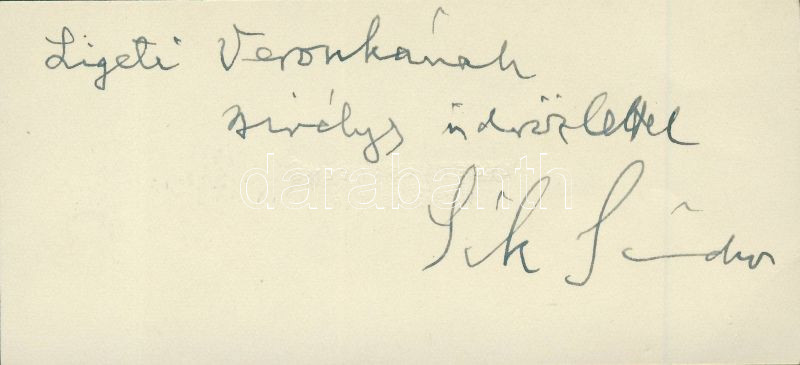 Ligeti Veronkának
szivélyes üdvözlettel
darabanth
Sík Sándor